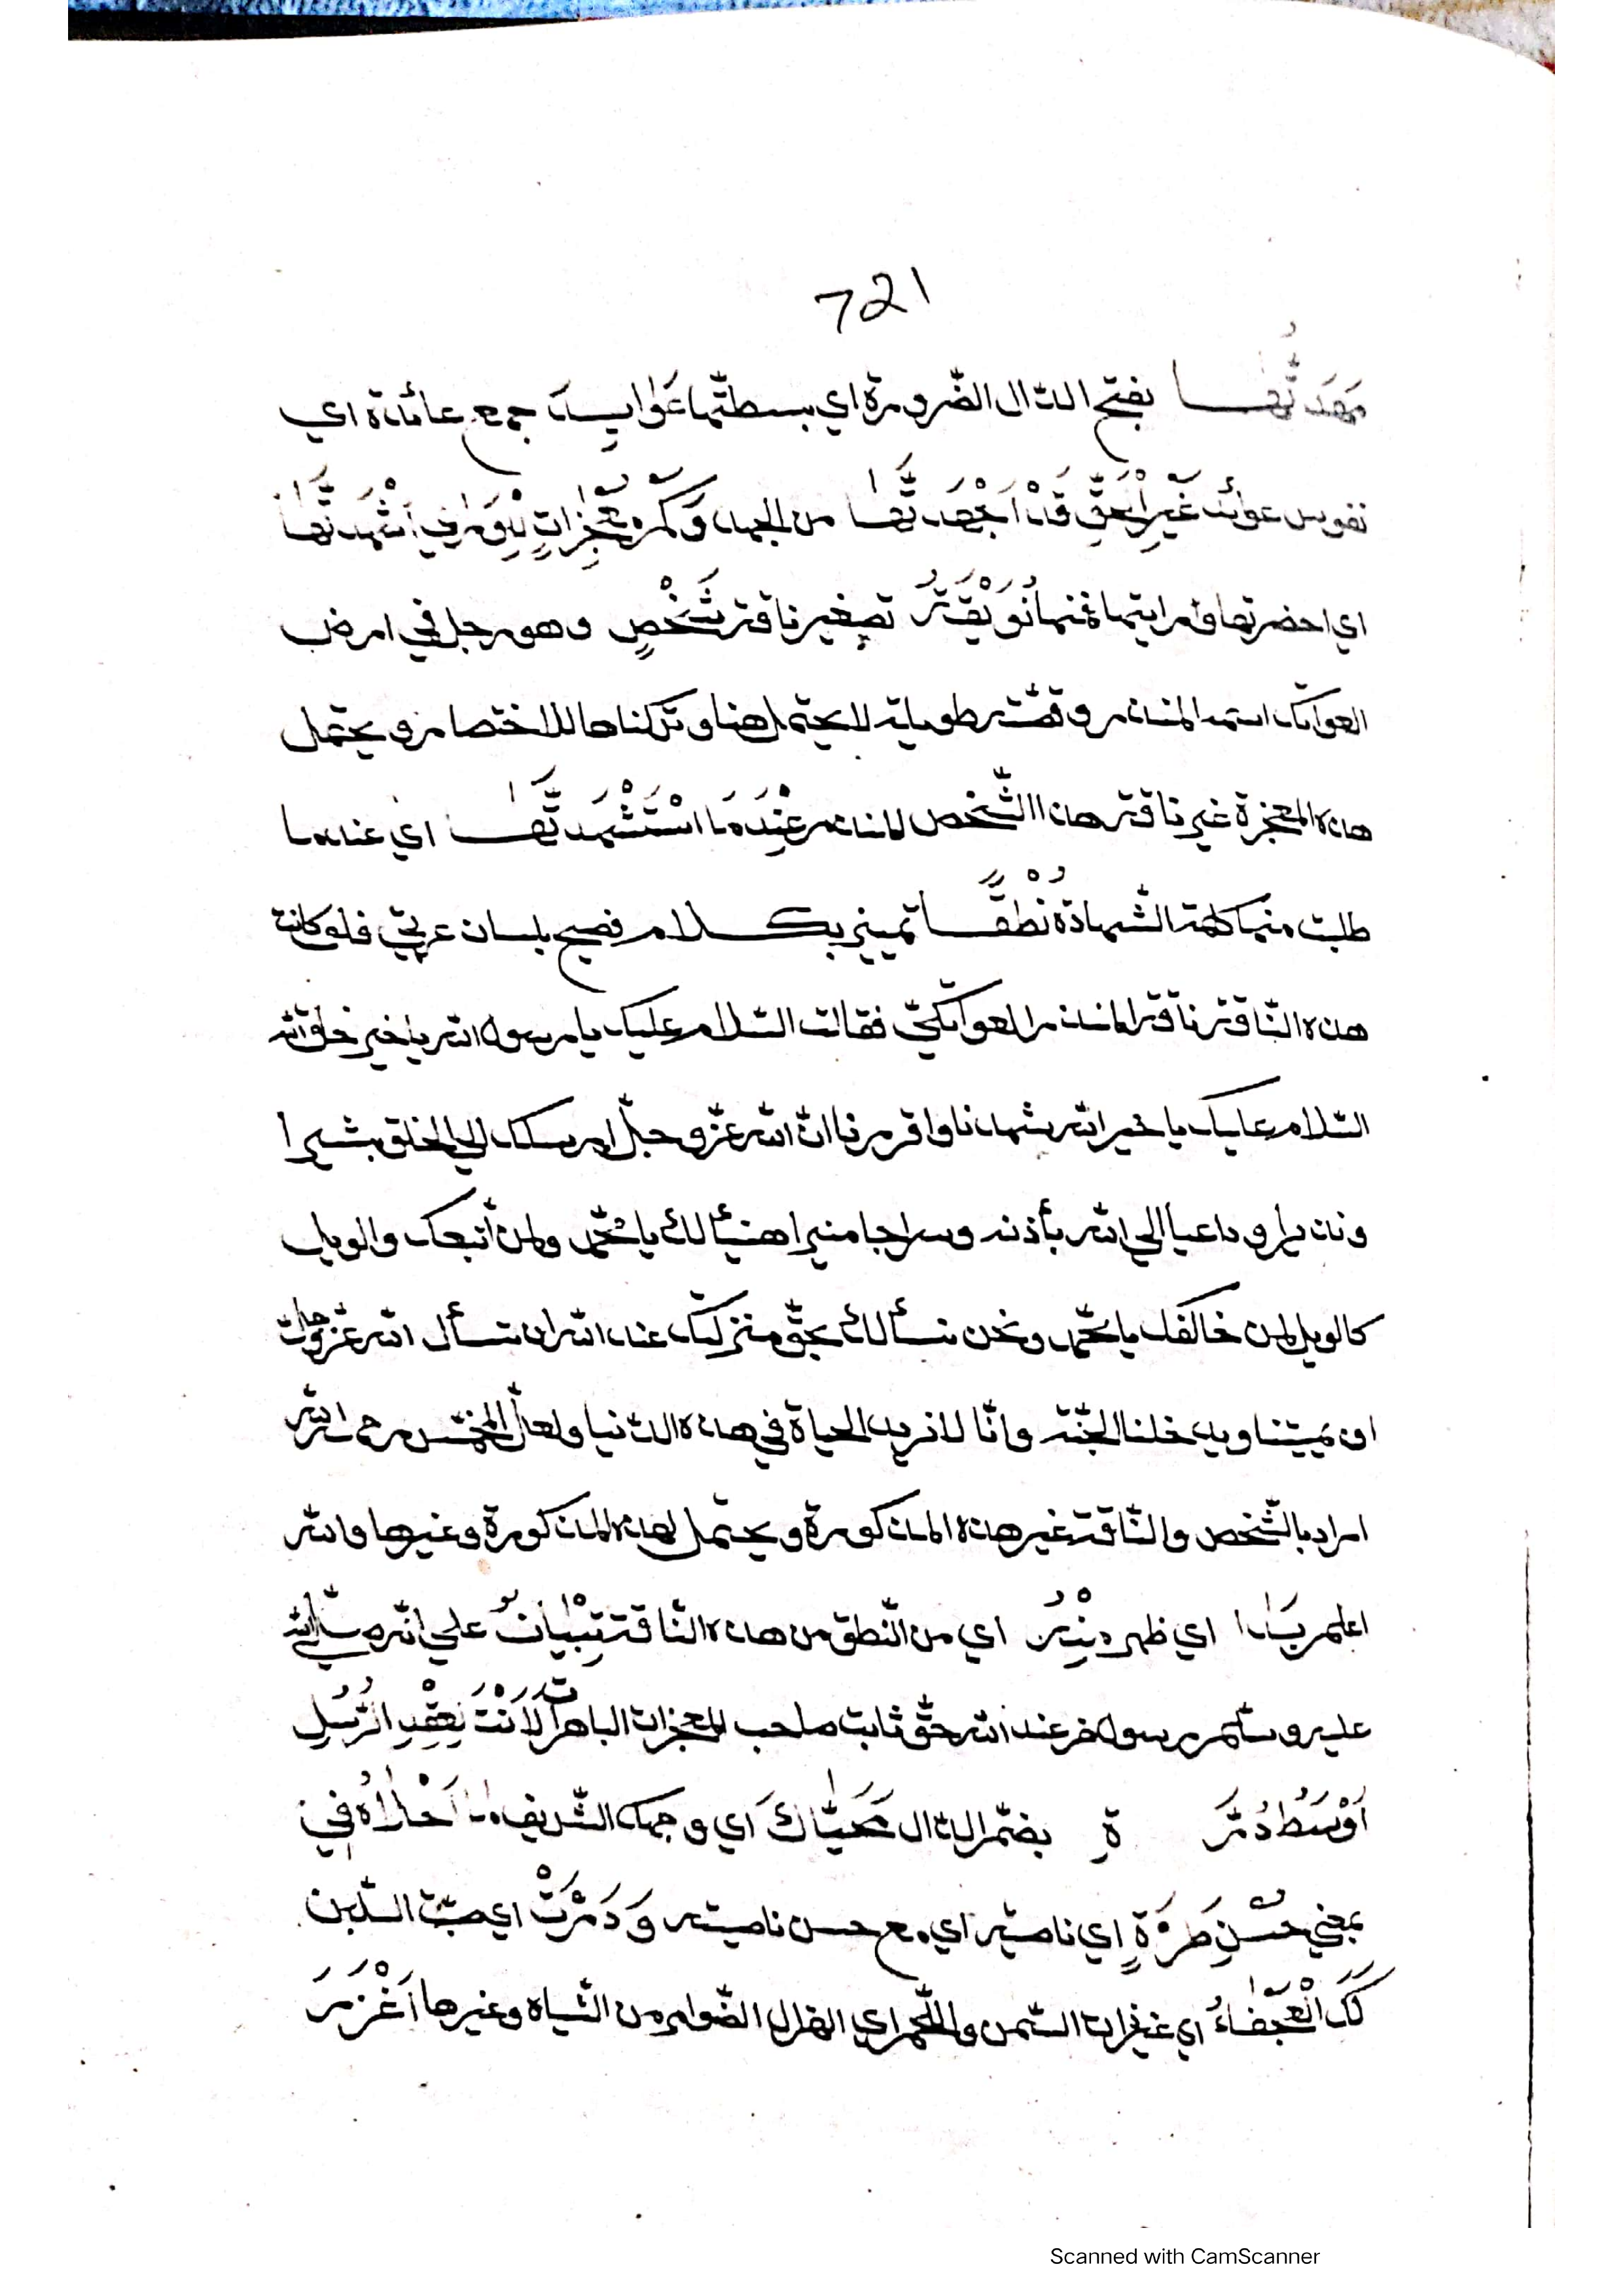 721
مَهَدتَّهَا بفتح الدّال الضّرورة اي بسطتّها عَوَايِدَ جمع عائدة اي
نفوس عوائد غَيْرِ الْحَقِّ قَدْ اَجْهَدتَّهَا من الجهد وَكَمْ مُعْجِزَاتٍ لِلْوَرٰي اَشْهَدتَّهَا
اي احضرتها ورايتها فمنها نُوَيْقَةُ تصغير ناقة شَخْصٍ وهو رجل في ارض
العوالك اسمه المنذر وقصّته طويلة لا يحتمل هنا وتركناها للاختصار ويحتمل
هذه المعجزة غير ناقة هذا الشّخص المنذر عِنْدَمَا اسْتَشْهَدتَّهَا اي عندما
طلبت منها كلمة الشّهادة نُطْقًا تمييز بكلام فصيح بلسان عربيّ فلو كانت
هذه النّاقة ناقة المنذر العوالكيّ فقالت السّلام عليك يا رسول الله يا خير خلق الله
السّلام عليك يا خير الله شهدنا واقررنا انّ الله عزّ وجلّ ارسلك الي الخلق بشيرا
ونذيرا وداعيا الي الله بأذنه وسراجا منيرا هنيأ لك يا محمّد ولمن اتّبعك والويل
كالويل لمن خالفك يا محمّد ونحن نسألك بحقّ منزلتك عند الله ان تسأل الله عزّ وجلّ
ان يميتنا ويدخلنا الجنّة وانّا لا نريد الحياة في هذه الدّنيا ولعلّ المخمّس رحمه الله
اراد بالشّخص والنّاقة غير هذه المذكورة ويحتمل لهذه المذكورة وغيرها والله
اعلم بَدَا اي ظهر مِنْهُ اي من النّطق من هذه النّاقة تِبْيَانٌ علي انّه صلّي الله
عليه وسلّم رسول عند الله حقّ ثابت صاحب المعجزات الباهرات لَاَنْتَ لِعِقْدِ الرُّسُلِ
اَوْسَطُ دُرَّةٍ بضمّ الدّال مُحَيَّاكَ اي وجهك الشّريف مَا اَحْلَاهُ في
بمعني حُسْنِ طُرَّةٍ اي ناصية اي مع حسن ناصيته وَدَرَّتْ اي صبّت اللّبن
لَكَ الْعَجْفَاءُ اي غيرات السّمن واللّحم اي الهزال الضّوامر من الشّياه وغيرها اَغْزَرَ
Scanned with CamScanner